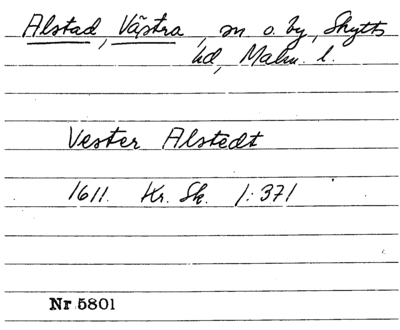 Alstad, Västra, sn o. by, Skytts
hd, Malm. l.
Vester Alstedt
1611. Kr. Sk. 1:371
Nr 5801